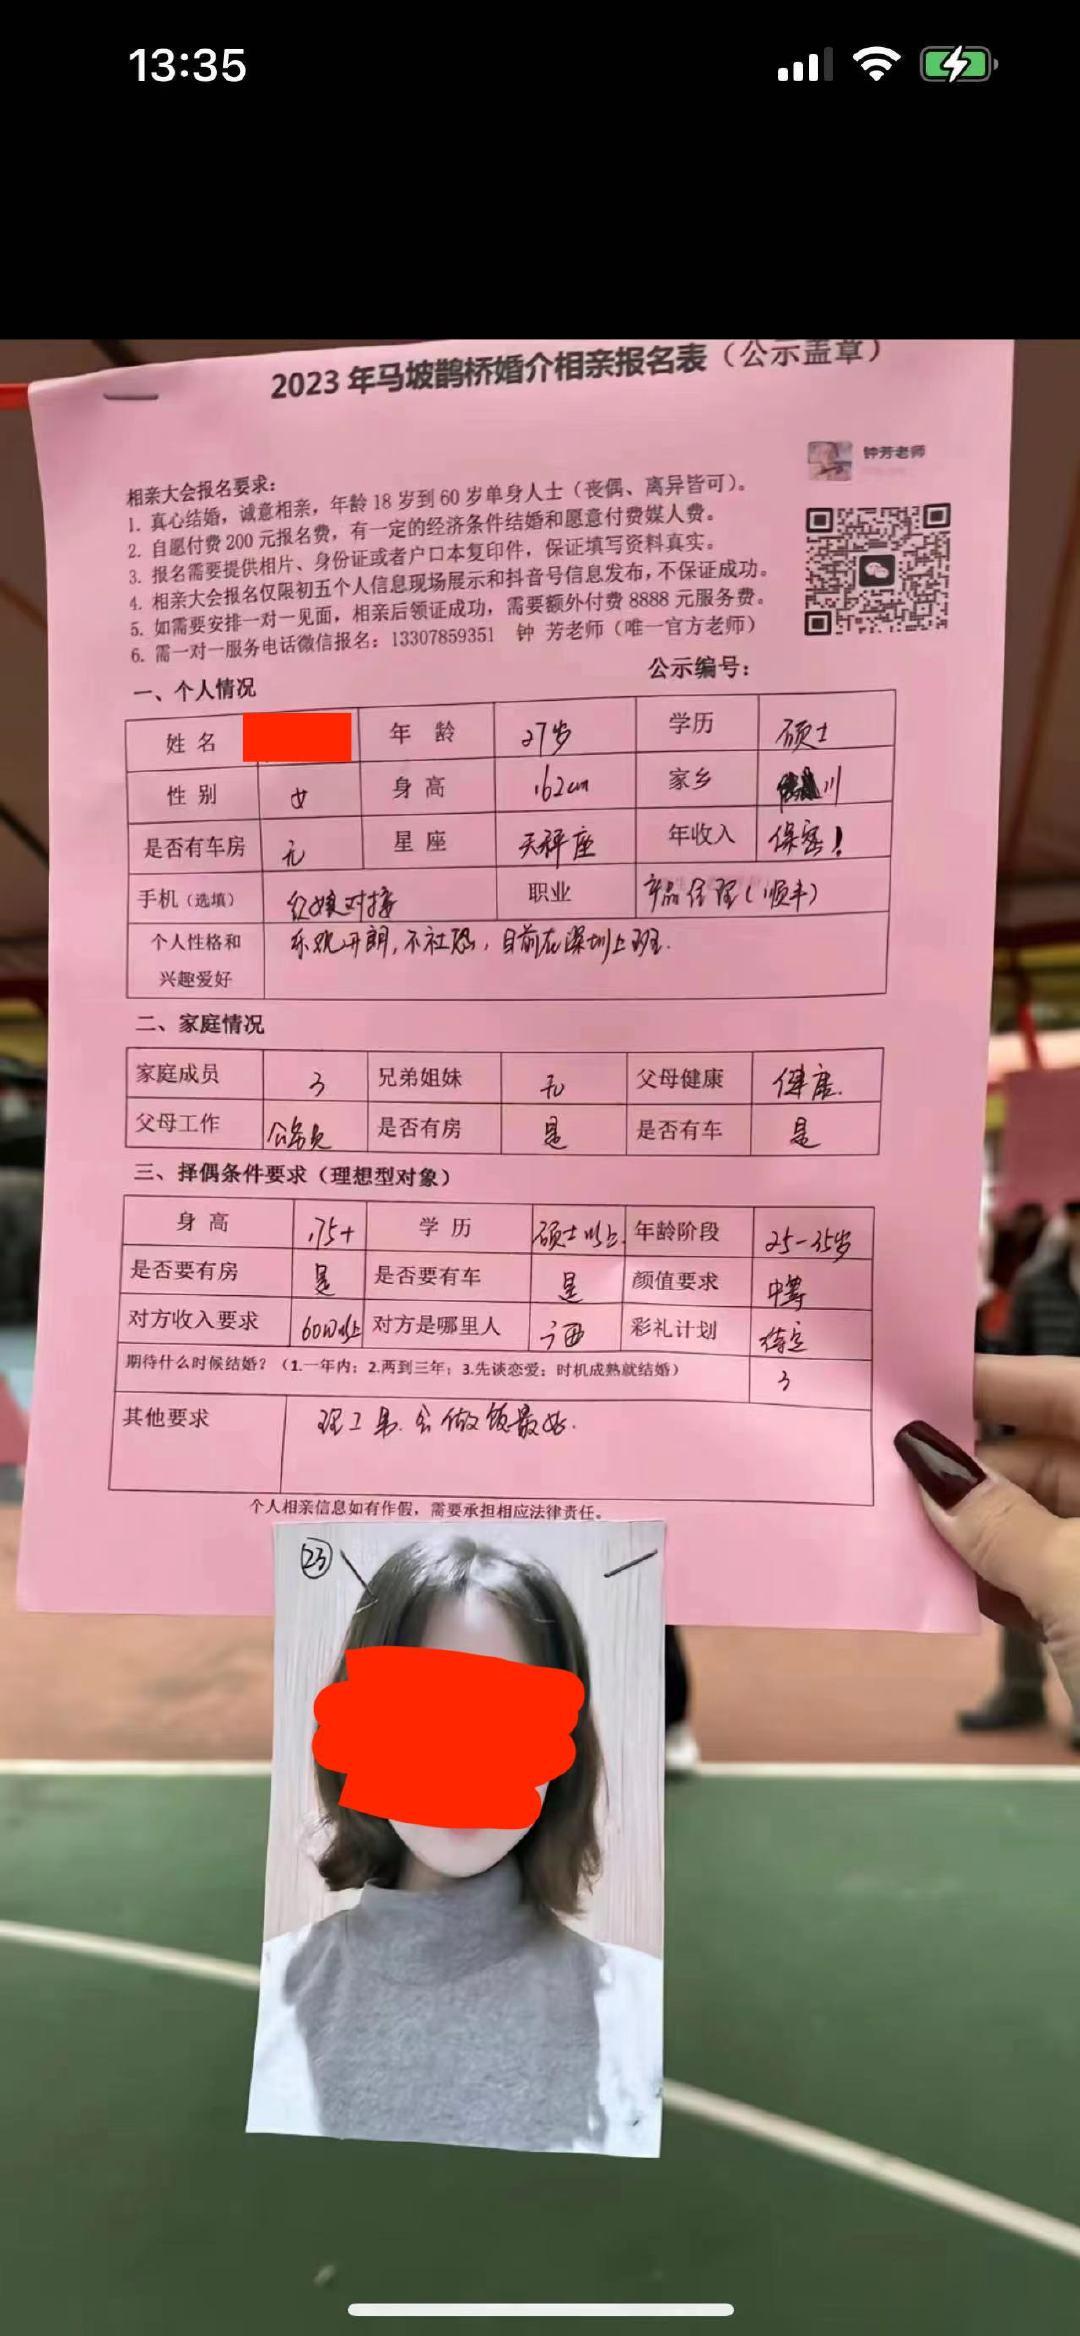 13:35
2023年马坡鹊桥婚介相亲报名表（公示盖章）
钟芳老师
相亲大会报名要求：
1. 真心结婚，诚意相亲，年龄18岁到60岁单身人士（丧偶、离异皆可）。
2. 自愿付费200元报名费，有一定的经济条件结婚和愿意付费媒人费。
3. 报名需要提供相片、身份证或者户口本复印件，保证填写资料真实。
4. 相亲大会报名仅限初五个人信息现场展示和抖音号信息发布，不保证成功。
5. 如需要安排一对一见面，相亲后领证成功，需要额外付费8888元服务费。
6. 需一对一服务电话微信报名：13307859351 钟 芳老师（唯一官方老师）
公示编号：
一、个人情况
姓名 年 龄 27岁 学历 硕士
性别 女 身高 162cm 家乡 川
是否有车房 无 星座 天秤座 年收入 保密！
手机（选填） 红娘对接 职业 产品经理（顺丰）
个人性格和兴趣爱好 乐观开朗，不社恐，目前在深圳上班.
二、家庭情况
家庭成员 3 兄弟姐妹 无 父母健康 健康.
父母工作 公务员 是否有房 是 是否有车 是
三、择偶条件要求（理想型对象）
身高 175+ 学历 硕士以上. 年龄阶段 25-35岁
是否要有房 是 是否要有车 是 颜值要求 中等
对方收入要求 60W以上 对方是哪里人 广西 彩礼计划 待定
期待什么时候结婚？（1.一年内；2.两到三年；3.先谈恋爱；时机成熟就结婚） 3
其他要求 理工男.会做饭最好.
个人相亲信息如有作假，需要承担相应法律责任。
23